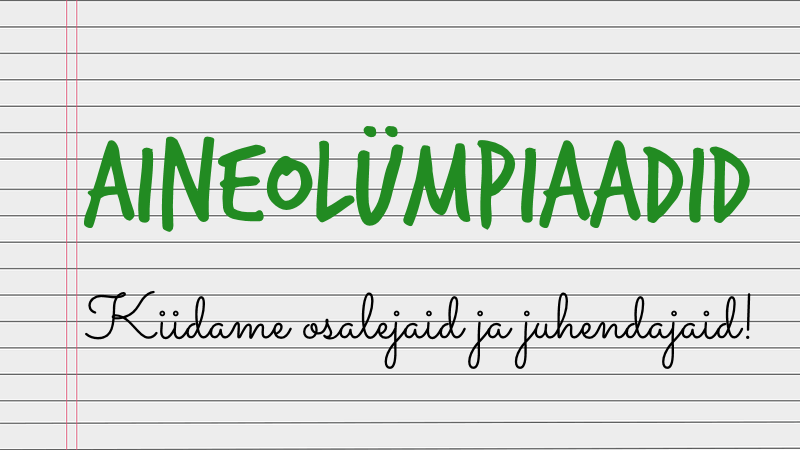 AINEOLÜMPIAADID
Kiidame osalejaid ja juhendajaid!